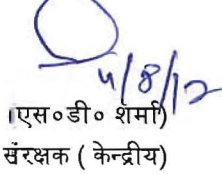 4/8/12
।एस०डी० शर्मा)
संरक्षक ( केन्द्रीय)